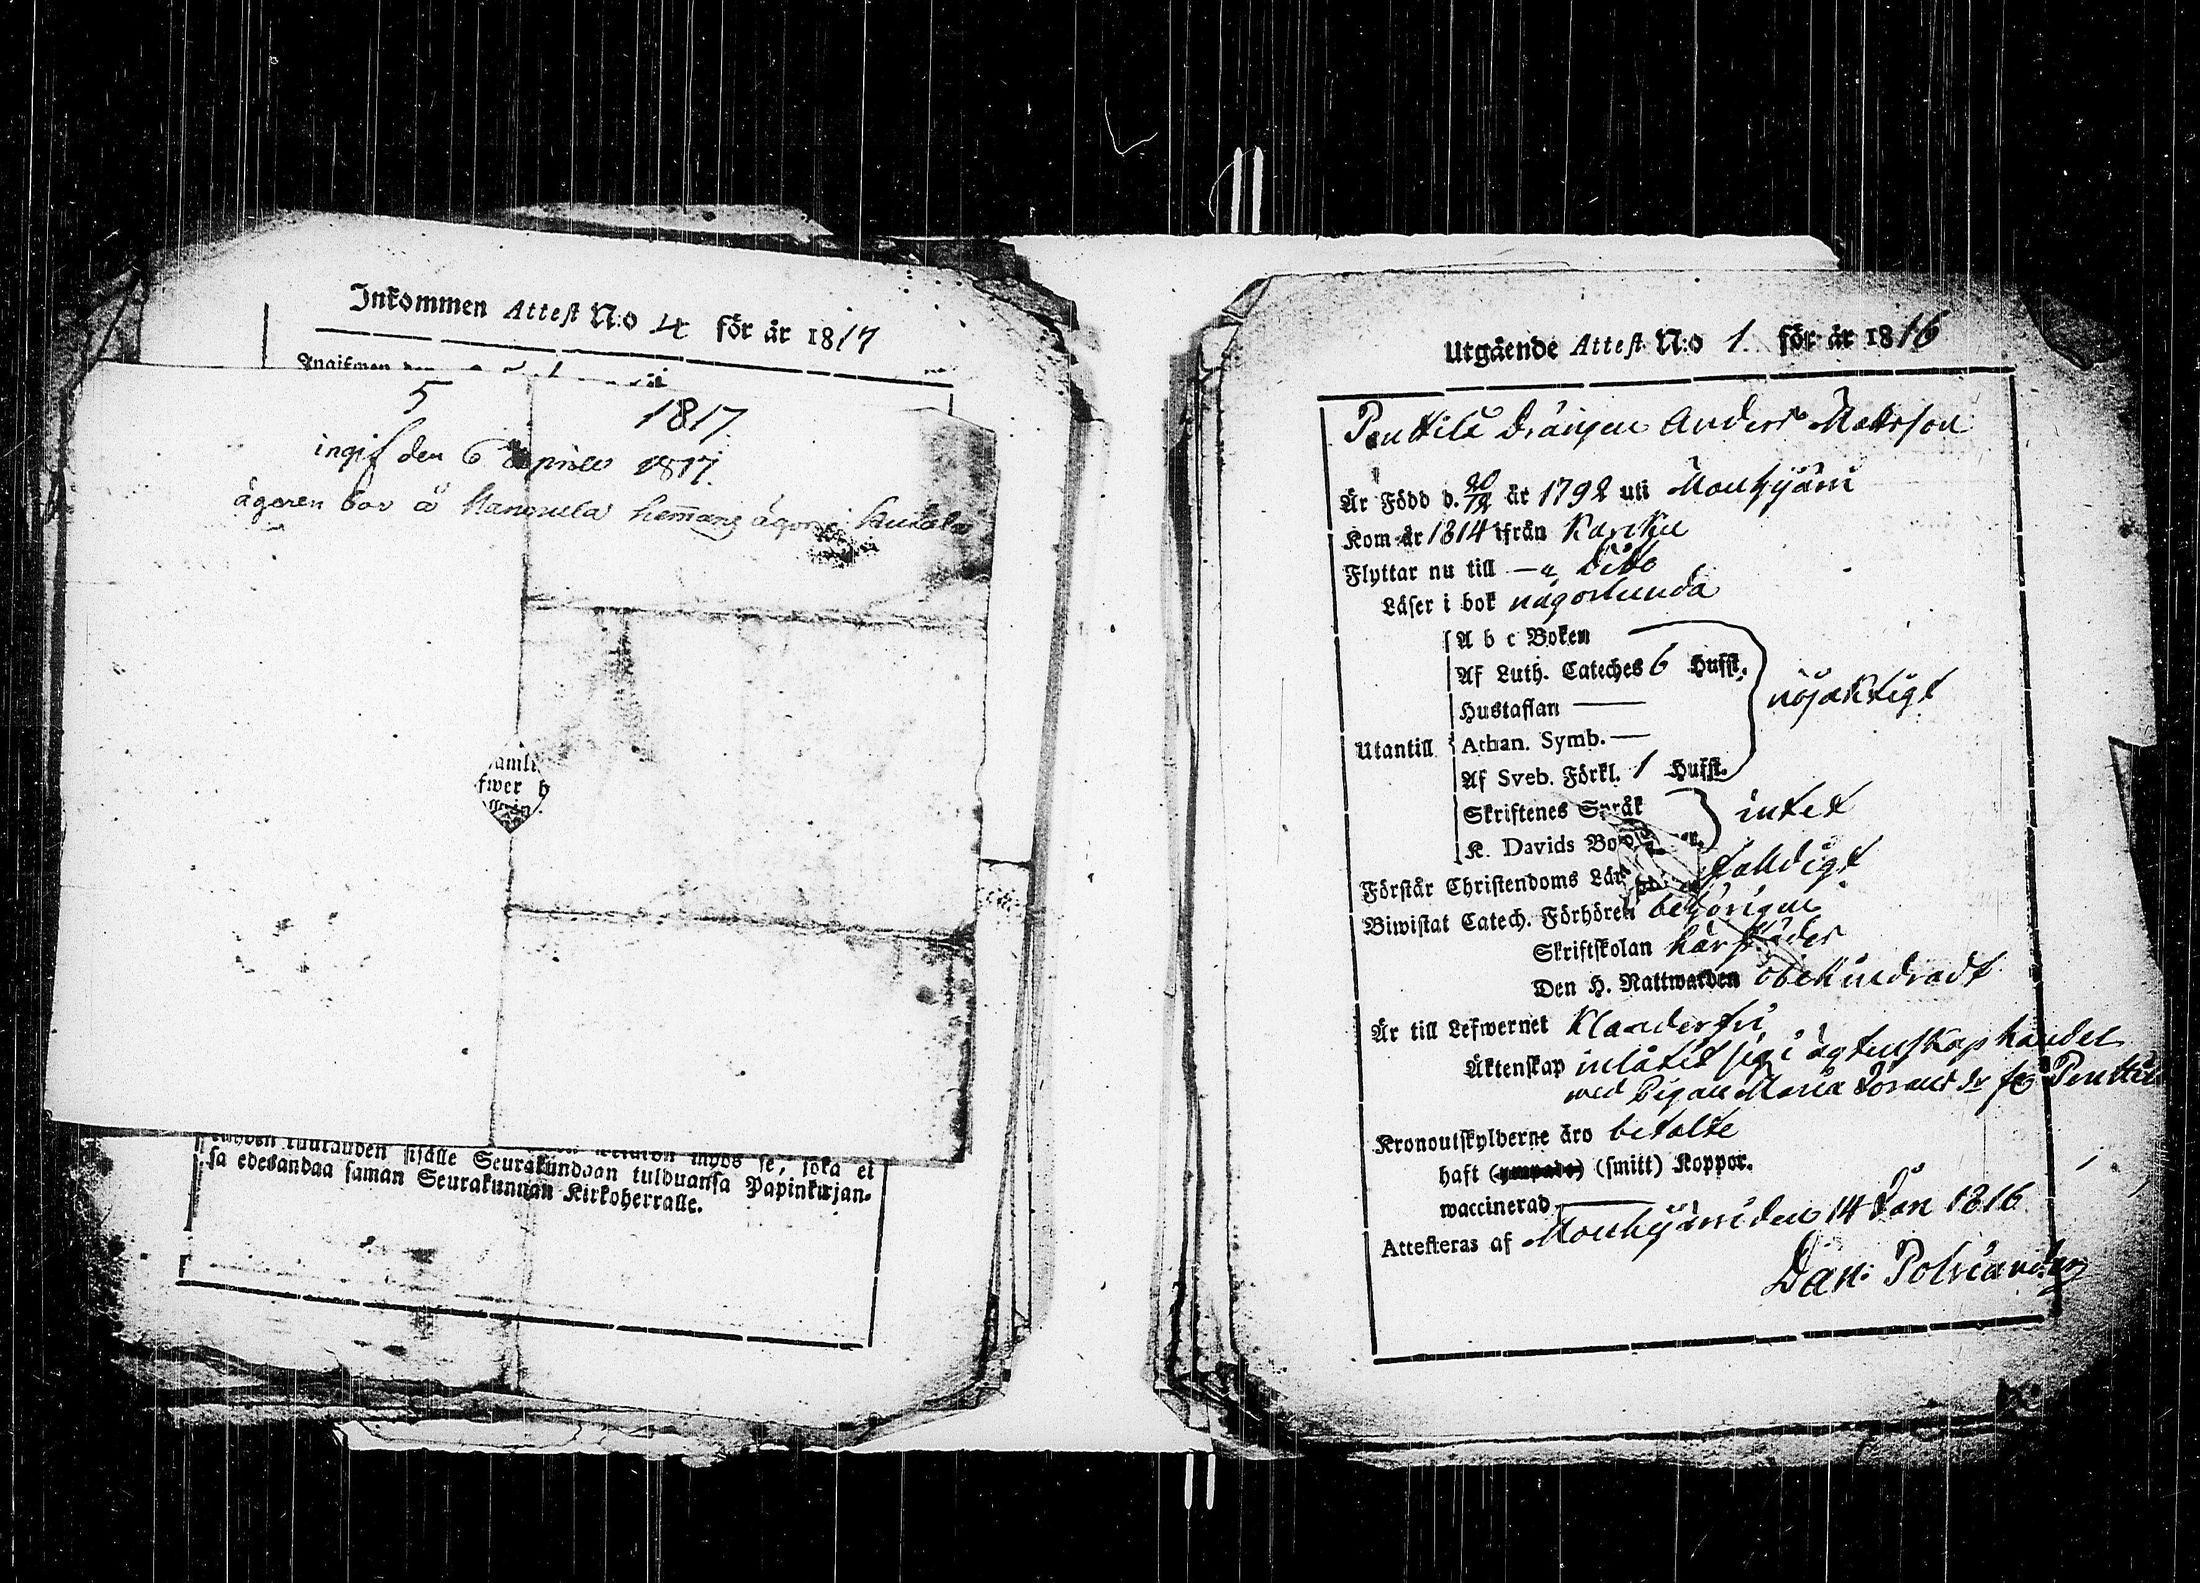 Inkommen Attest N:o 4 för år 1817
5 1817
ingif den 6 Aprill 1817.
ägaren bor å Hannula hemans ägor i
samli
fwer b
sisälle Seurakundaan tulduansa Papinkirjan-
sa edesandaa saman Seurakunnan Kirkoherralle.
Utgående Attest N:o 1. för år 1816
Penttilä Drängen Anders Matsson
Är Född d. 20/12 år 1792 uti Mouhijärvi
Kom år 1814 ifrån Karku
Flyttar nu till —„ ditto
Läser i bok någorlunda
A b c Boken
Af Luth. Cateches 6 Hufst.
nöjaktigt
Hustaflan —
Utantill Athan. Symb. —
Af Sveb. Förkl. 1 Hufst.
Skriftenes Språk
intet
K. Davids Bot
Förstår Christendoms Lär
Biwistat Catech. Förhören behörigen
Skriftskolan härstädes
Den H. Nattwarden obehindradt
Är till Lefwernet Klanderfri
Äktenskap inlåtit sig i ägtenskaps handel
med Pigan Maria
Kronoutskylderne äro betalte
haft (ympade) (smitt) Koppor.
waccinerad —
Attesteras af Mouhijärvi den 14 Jan 1816
Dan: Polviander